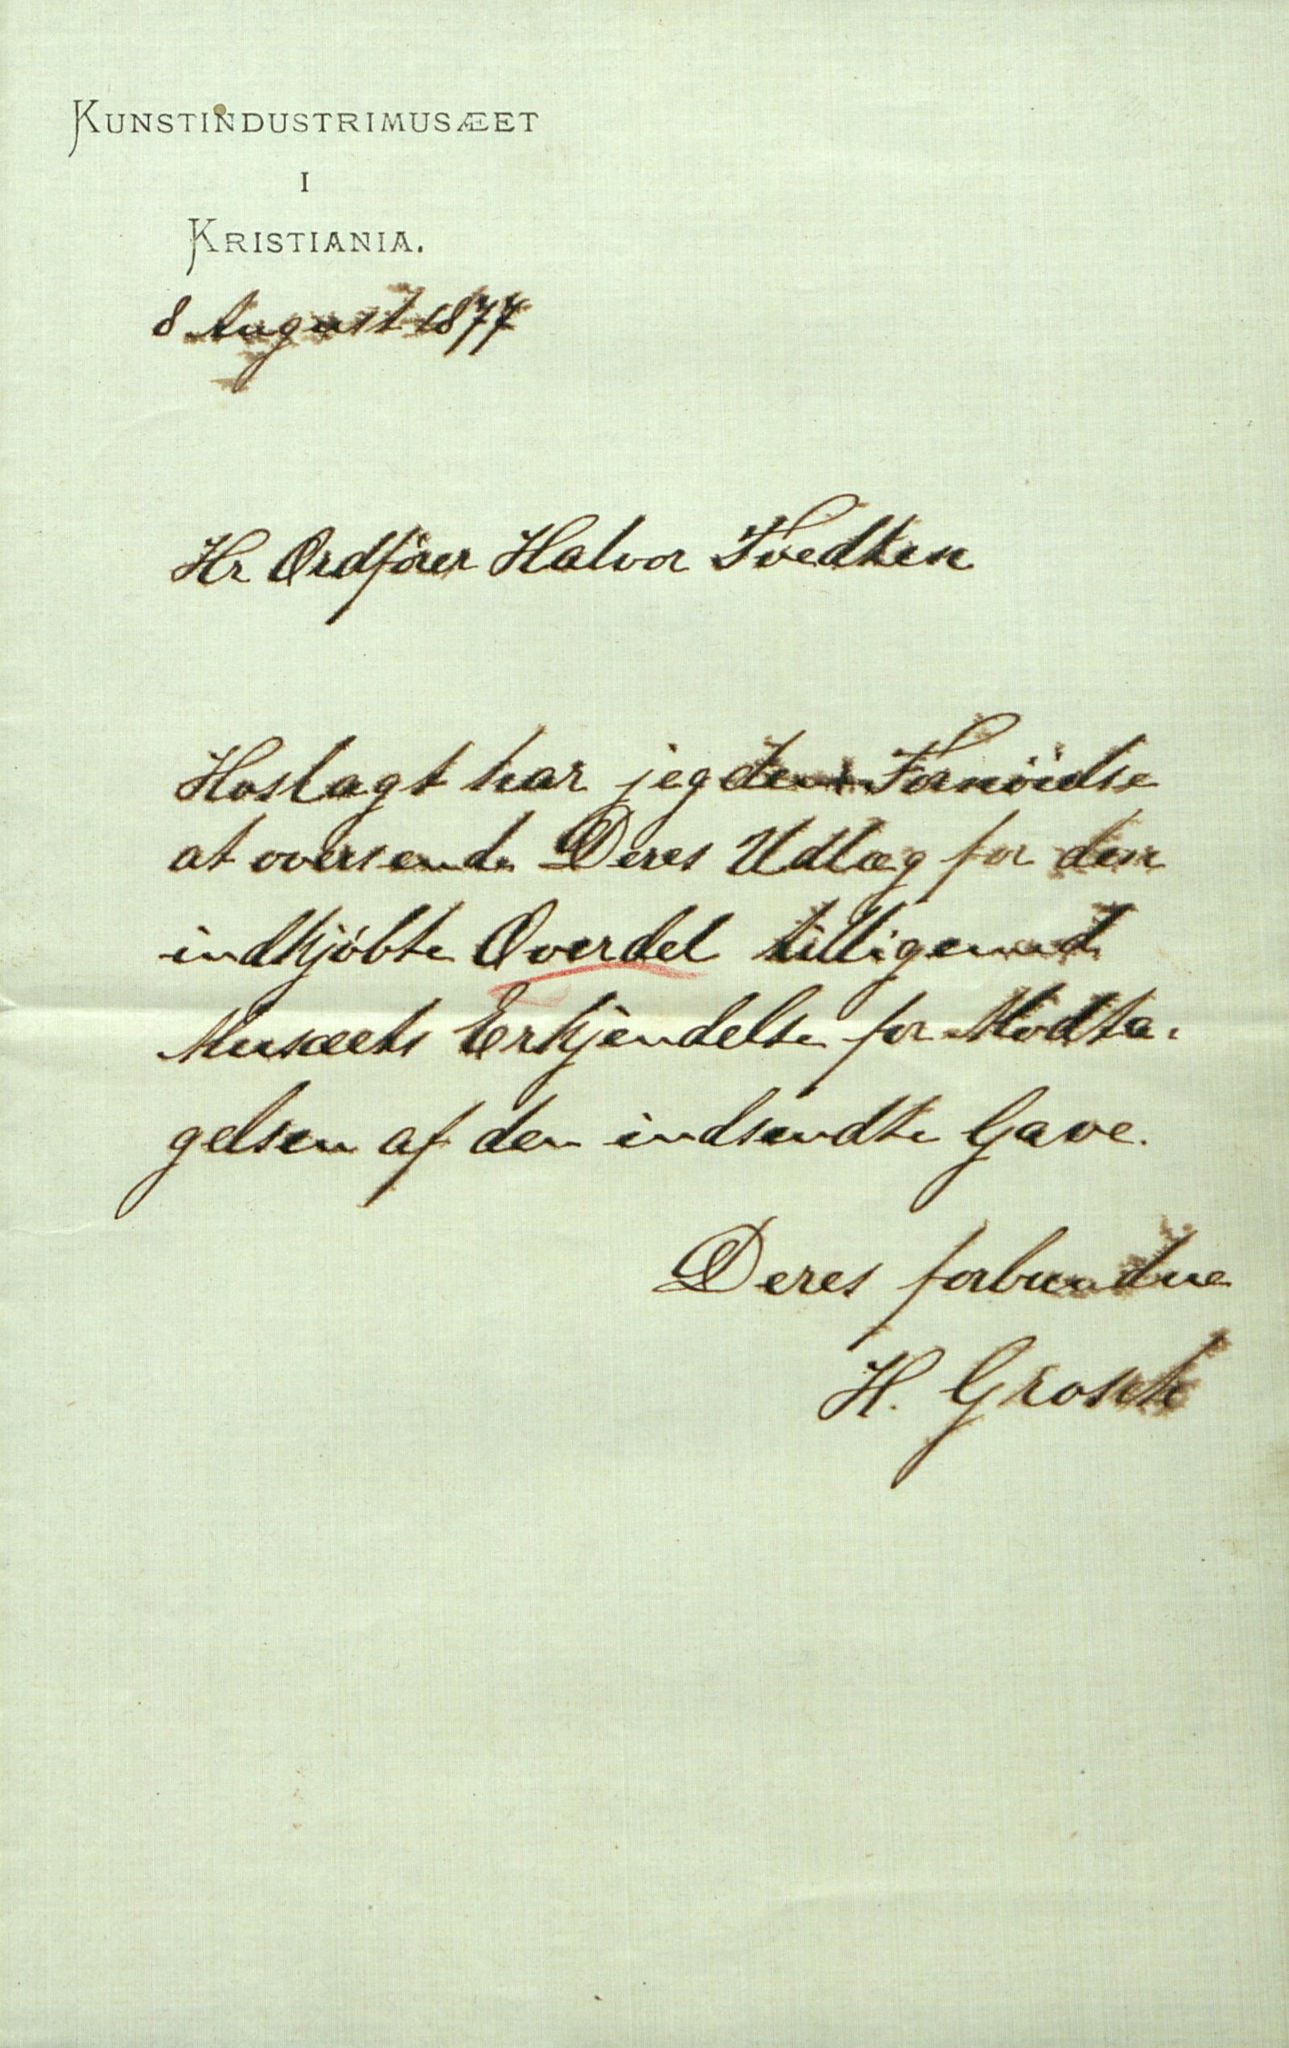 KUNSTINDUSTRIMUSÆET
I
KRISTIANIA.
8 August 1877
Hr Ordförer Halvor Tvedten
Hoslagt har jeg den Fornöidse
at oversende Deres Udlæg for den
indkjöbte Overdel tilligemed
Musæets Erkjendelse for Modta-
gelsen af den indsendte Gave.
Deres forbundne
H. Grosch